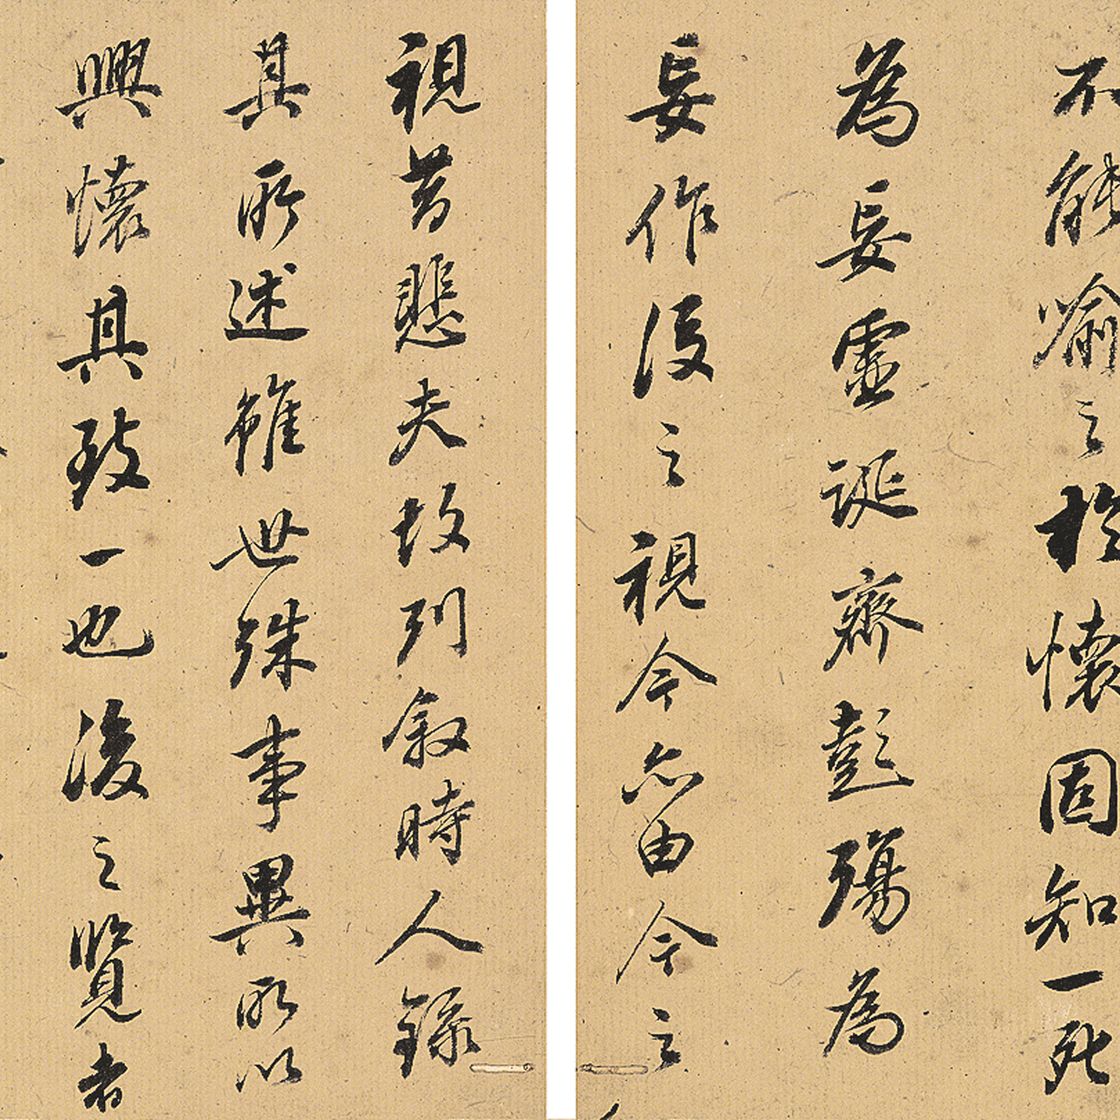 不能喻之於懷固知一死
為妄虛誕齊彭殤為
妄作後之視今亦由今之
視昔悲夫故列敘時人錄
其所述雖世殊事異所以
興懷其致一也後之覽者